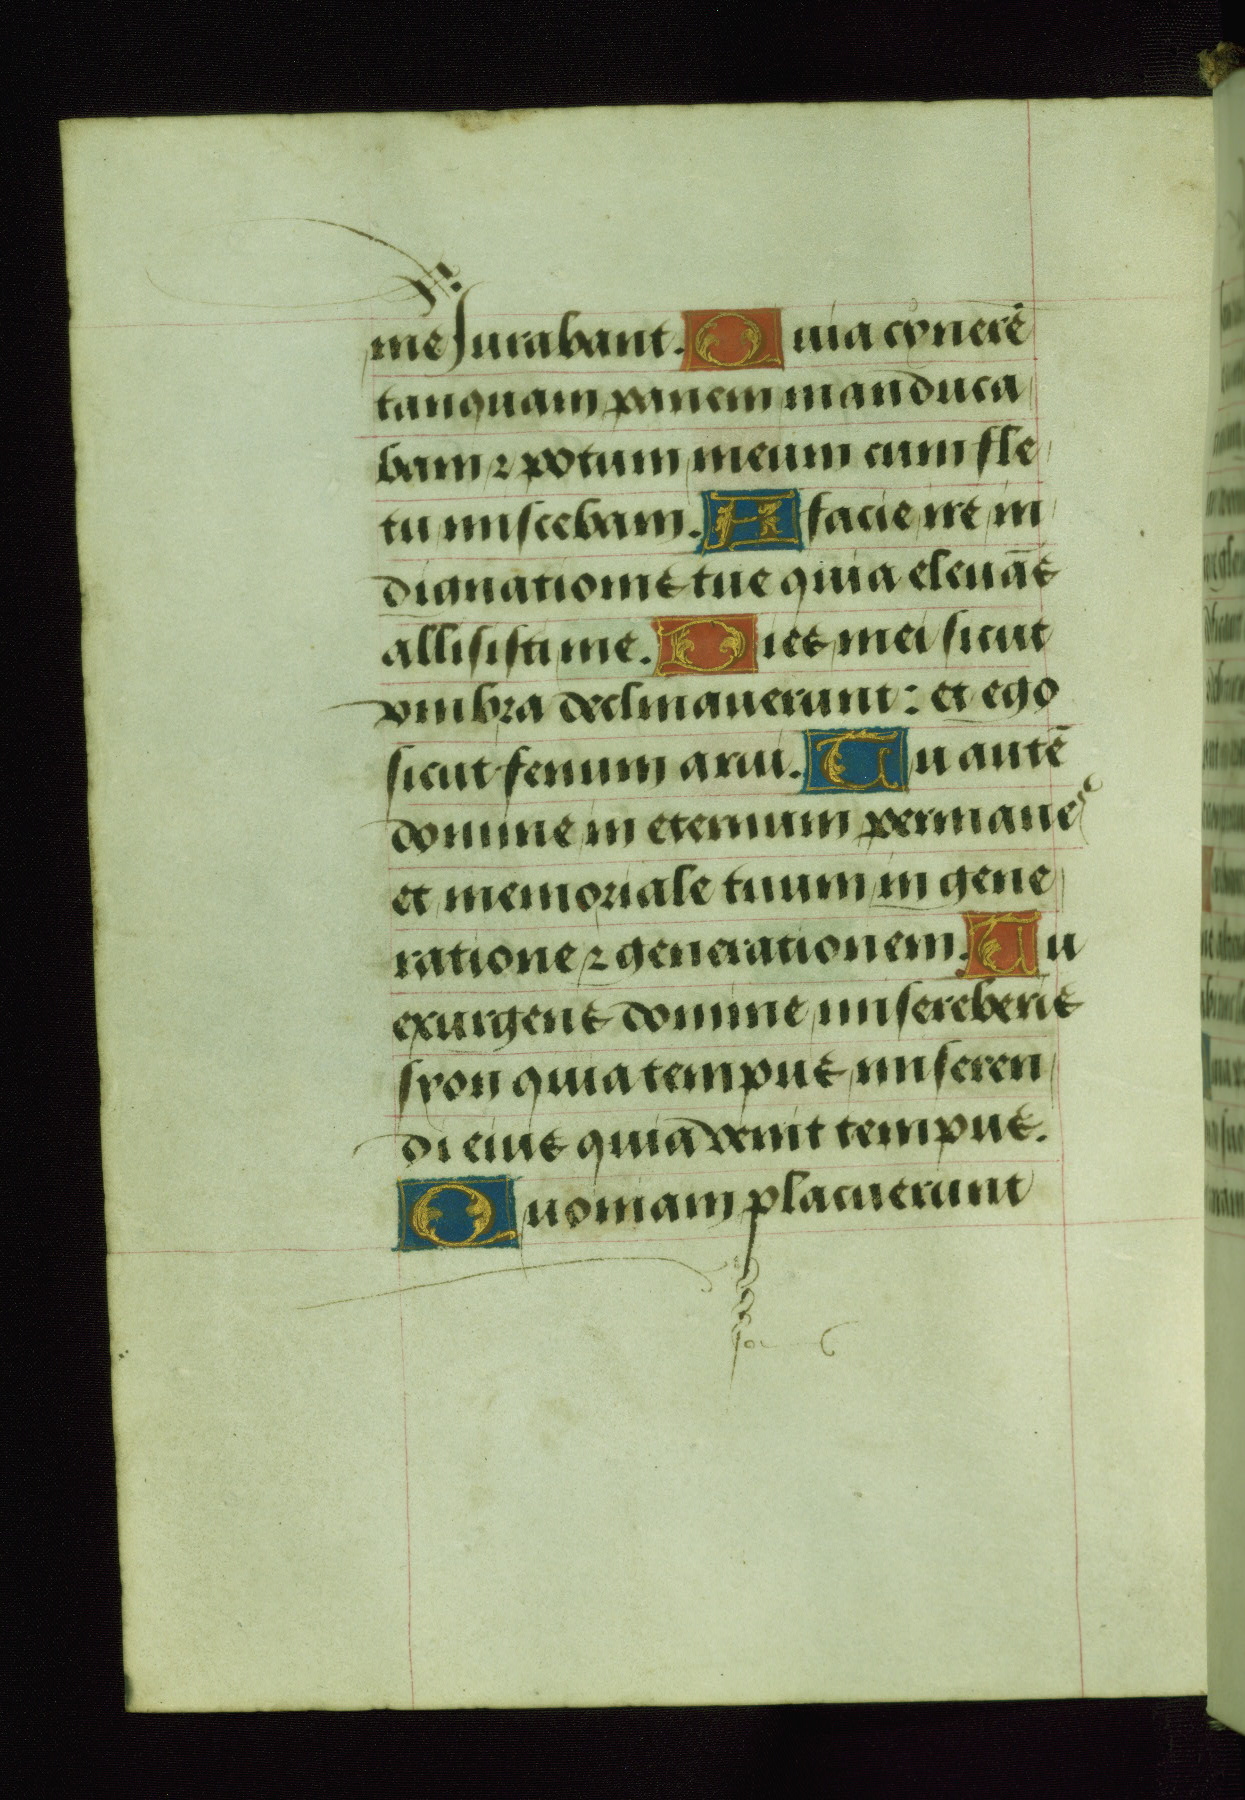 me Jurabant. Quia cynerē
tanquam panem manduca
bam ⁊ potum meum cum fle
tu miscebam. A facie ire in
dignationis tue quia eleuās
allisisti me. Dies mei sicut
vmbra declinauerunt: et ego
sicut fenum arui. Tu autē
domine in eternum permanes
et memoriale tuum in gene
ratione ⁊ generationem. Tu
exurgens domine misereberis
syon quia tempus miseren
di eius quia venit tempus.
Quoniam placuerunt